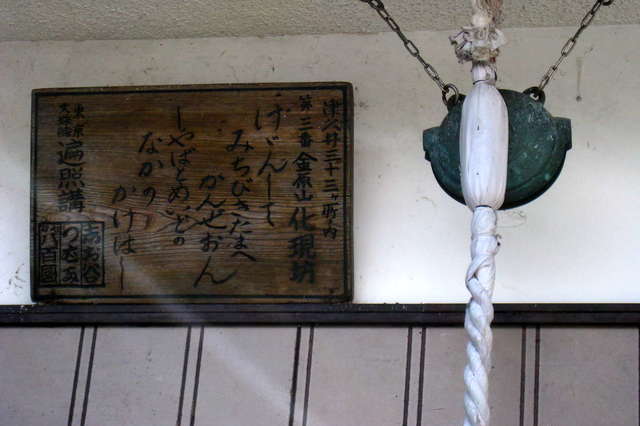 津久井三十三ヶ所内
第三番 金原山 化現坊
けげんして
みちびきたまへ
かんぜおん
しやばとめいどの
なかの
かけはし
東京
遍照講
八百園